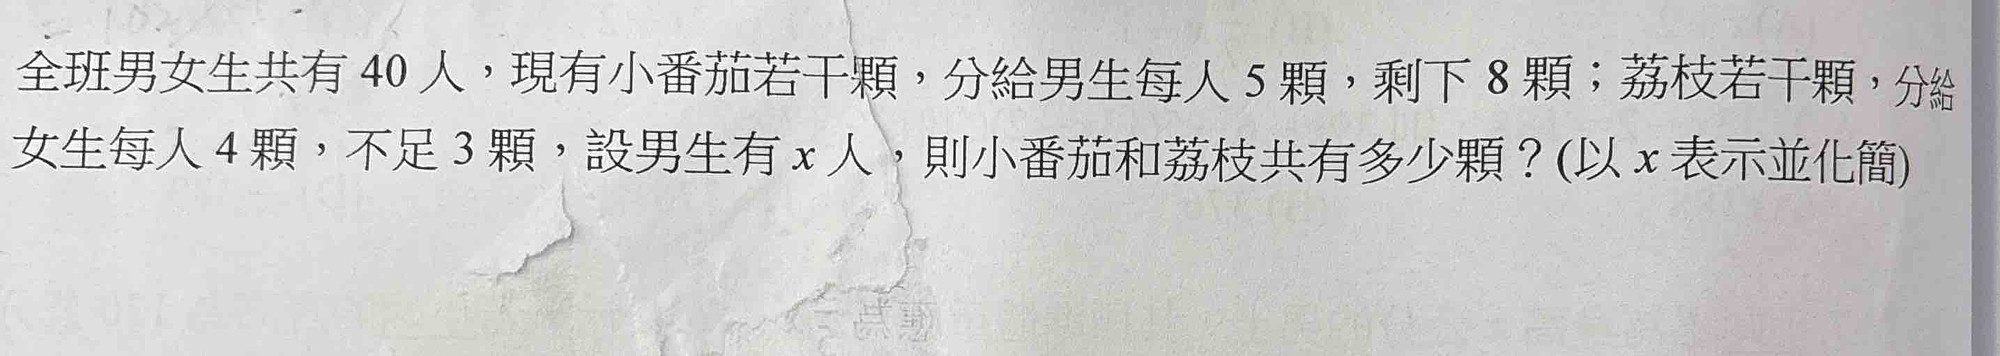 全班男女生共有 40 人，現有小番茄若干顆，分給男生每人 5 顆，剩下 8 顆；荔枝若干顆，分給
女生每人 4 顆，不足 3 顆，設男生有 x 人，則小番茄和荔枝共有多少顆？(以 x 表示並化簡)